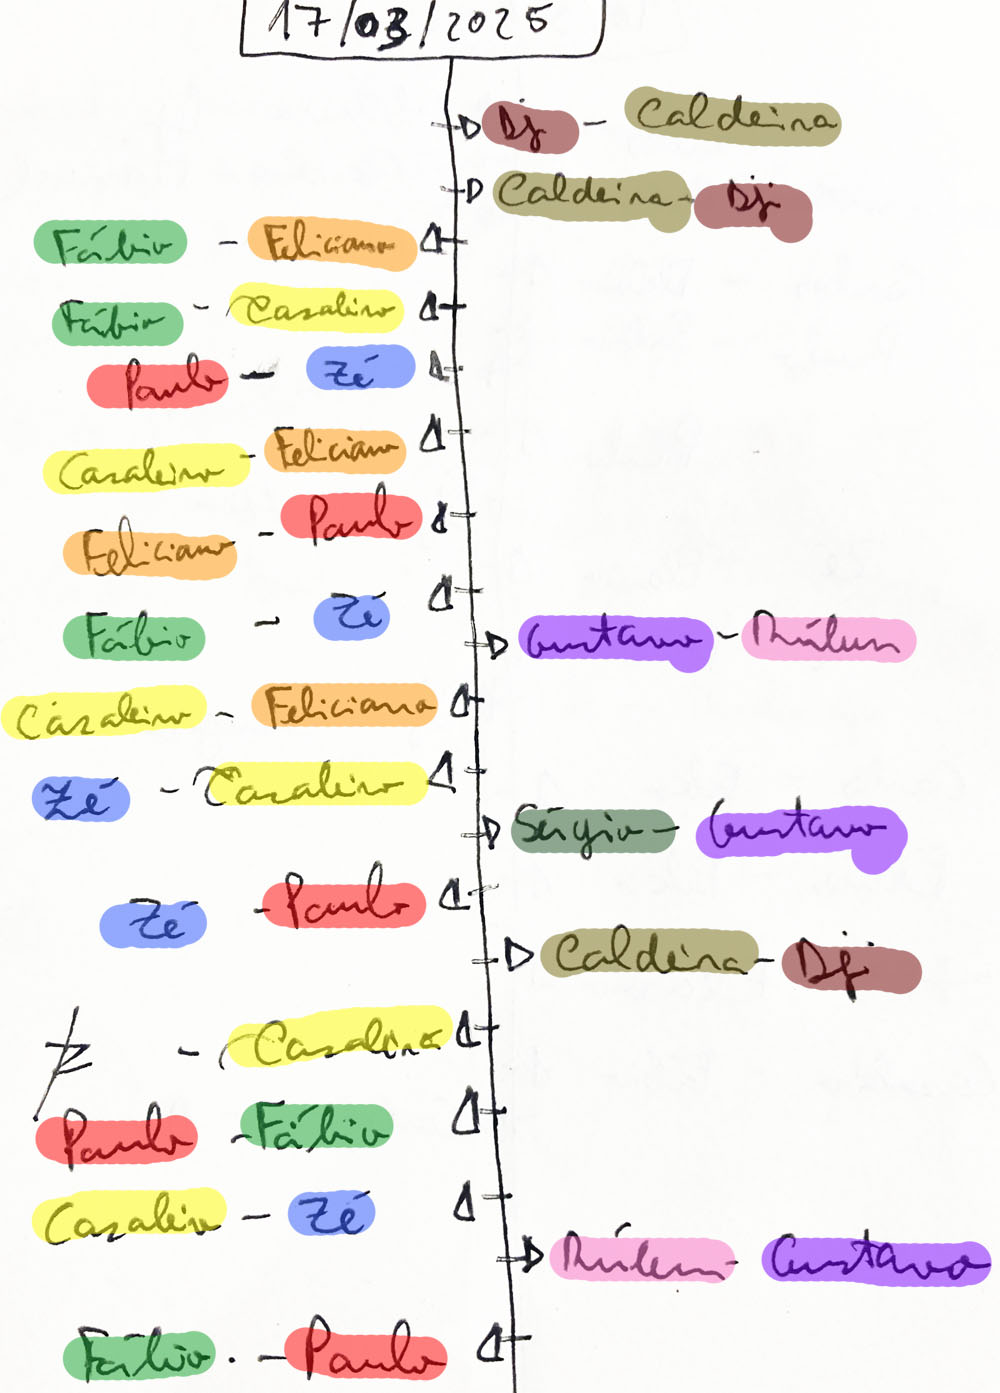 17/03/2025
Dj - Caldeira
Caldeira - Dj
Fábio - Feliciano
Fábio - Casaleiro
Paulo - Zé
Casaleiro - Feliciano
Feliciano - Paulo
Fábio - Zé
Gustavo - Rúben
Casaleiro - Feliciano
Zé - Casaleiro
Sérgio - Gustavo
Zé - Paulo
Caldeira - Dj
- Casaleiro
Paulo - Fábio
Casaleiro - Zé
Rúben - Gustavo
Fábio. - Paulo